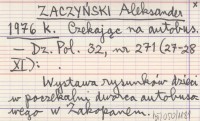 ZACZYŃSKI Aleksander
1976 k. Czekając na autobus.
— Dz. Pol. 32, nr 271 (27-28
XI):
Wystawa rysunków dzieci
w poczekalni dworca autobuso
wego w Zakopanem.